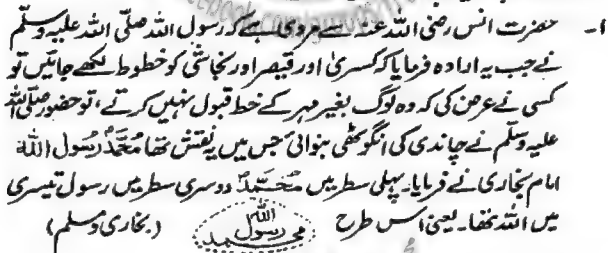 ۱۔ حضرت انس رضی اللہ عنہ سے مروی ہے کہ رسول اللہ صلی اللہ علیہ وسلم
نے جب یہ ارادہ فرمایا کہ کسریٰ اور قیصر اور نجاشی کو خطوط لکھے جائیں تو
کسی نے عرض کی کہ وہ لوگ بغیر مہر کے خط قبول نہیں کرتے ، تو حضور صلی اللہ
علیہ وسلم نے چاندی کی انگوٹھی بنوائی جس میں یہ نقش تھا مُحَمَّدٌ رَّسُولُ اللّٰہ
امام بخاری نے فرمایا۔ پہلی سطر میں مُحَمَّدٌ دوسری سطر میں رسول تیسری
میں اللہ تھا۔ یعنی اس طرح اللہ رسول محمد (بخاری ومسلم)